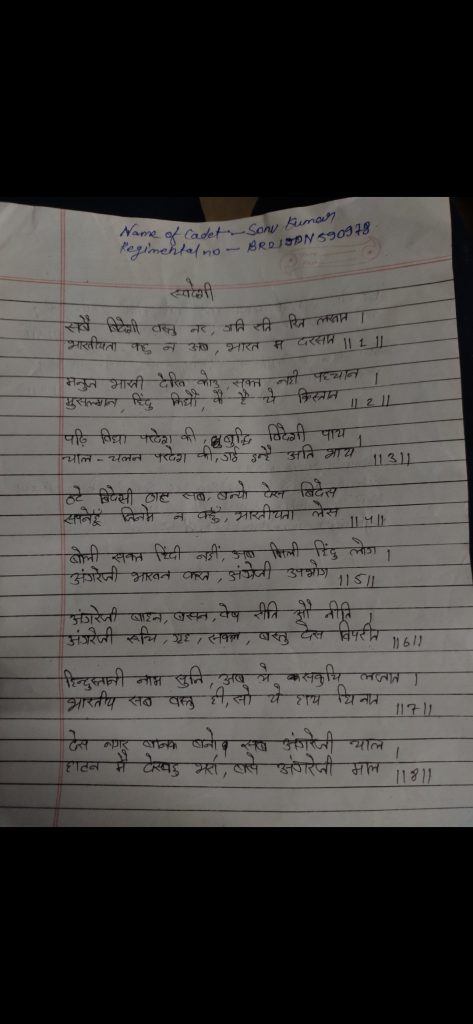 Name of Cadet - Sonu Kumar
Regimental no - BR21SDN590978
स्वदेशी
सबै बिदेसी वस्तु नर, गति रति रीत लखात ।
भारतीयता कछु न अब, भारत म दरसात ॥1॥
मनुज भारती देखि कोउ, सकत नहीं पहचान ।
मुसल्मान, हिंदू किधौं, कै हैं ये क्रिस्तान ॥2॥
पढ़ि विद्या परदेश की, बुद्धि विदेशी पाय
चाल-चलन परदेश की, गई इन्हैं अति भाय ॥3॥
ठटे बिदेसी ठाट सब, बन्यो देस बिदेस
सपनेहूँ जिनमे न कहुँ, भारतीयता लेस ॥4॥
बोली सकत हिंदी नहीं, अब मिली हिंदू लोग ।
अंगरेजी भाखत करत, अंग्रेजी उपभोग ॥5॥
अंगरेजी बाहन, बसन, वेष रीति औ नीति ।
अंगरेजी रुचि, गृह, सकल, बस्तु देस विपरीत ॥6॥
हिन्दुस्तानी नाम सुनि, अब ये सकुचि लजात ।
भारतीय सब वस्तु ही, सों ये हाय घिनात ॥7॥
देस नगर बानक बनो, सब अंगरेजी चाल ।
हाटन मैं देखहु भरा, बसे अंगरेजी माल ॥8॥